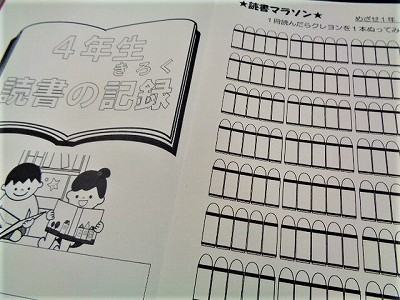 4年生
きろく
読書の記録
★読書マラソン★
めざせ1年
1冊読んだらクレヨンを1本ぬってみ